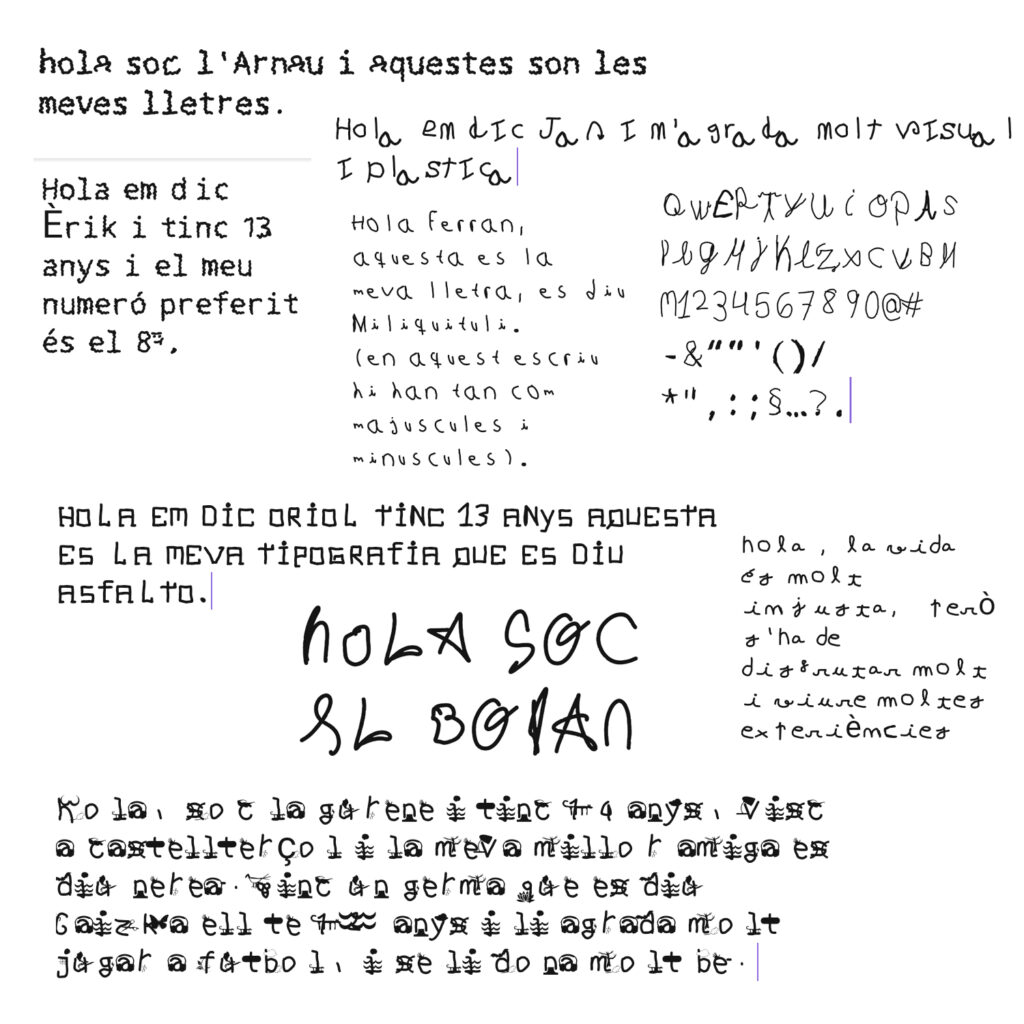 hola soc l'Arnau i aquestes son les
meves lletres.
Hola em dic Jan i m'agrada molt visual
i plastica
Hola em dic
Èrik i tinc 13
anys i el meu
numeró preferit
és el 87.
Hola Ferran,
aquesta es la
meva lletra, es diu
Miliquituli.
(en aquest escriu
hi han tan com
majuscules i
minuscules).
QWERTYUiOPAS
HJKLZXCVBN
M1234567890@#
-&""'()/
*",:;§...?.
HOLA EM DIC ORIOL TINC 13 ANYS AQUESTA
ES LA MEVA TIPOGRAFIA QUE ES DIU
ASFALTO.
hola, la vida
és molt
injusta, però
s'ha de
disfrutar molt
i viure moltes
experiències
HOLA SOC
EL
Hola, soc la garene i tinc anys, visc
a castellterçol i la meva millor amiga es
diu nerea. Tinc un germa que es diu
ell te anys i li agrada molt
jugar a futbol, i se li dona molt be.